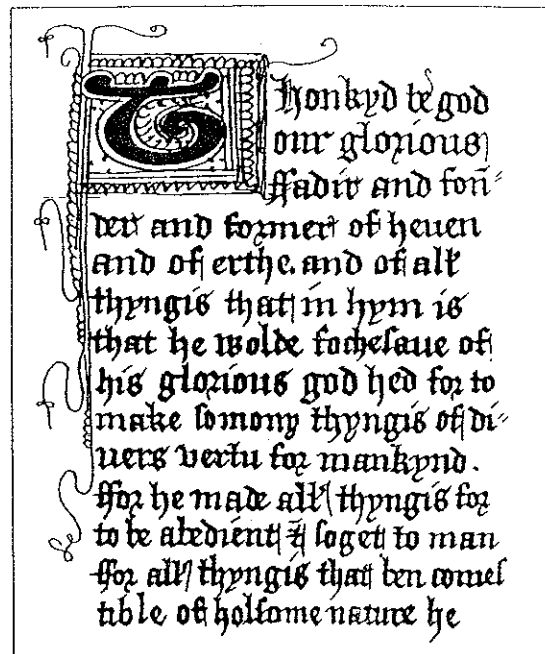 Thonkyd be god
our glorious
ffadir and foū-
der and former of heuen
and of erthe. and of all
thyngis that in hym is
that he wolde fochesaue of
his glorious god hed for to
make somony thyngis of di-
uers vertu for mankynd.
ffor he made all thyngis for
to be abedient & soget to man
ffor all thyngis that ben comes
tible of holsome nature he